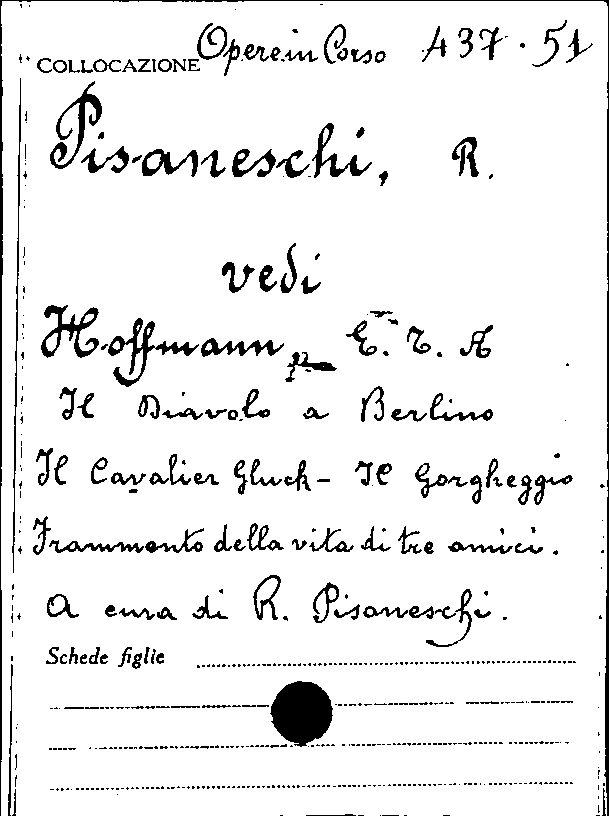 COLLOCAZIONE Opere in Corso 437.51
Pisaneschi, R.
vedi
Hoffmann, E. T. A
Il Diavolo a Berlino
Il Cavalier Gluck - Il Gorgheggio
Frammento della vita di tre amici.
A cura di R. Pisaneschi.
Schede figlie